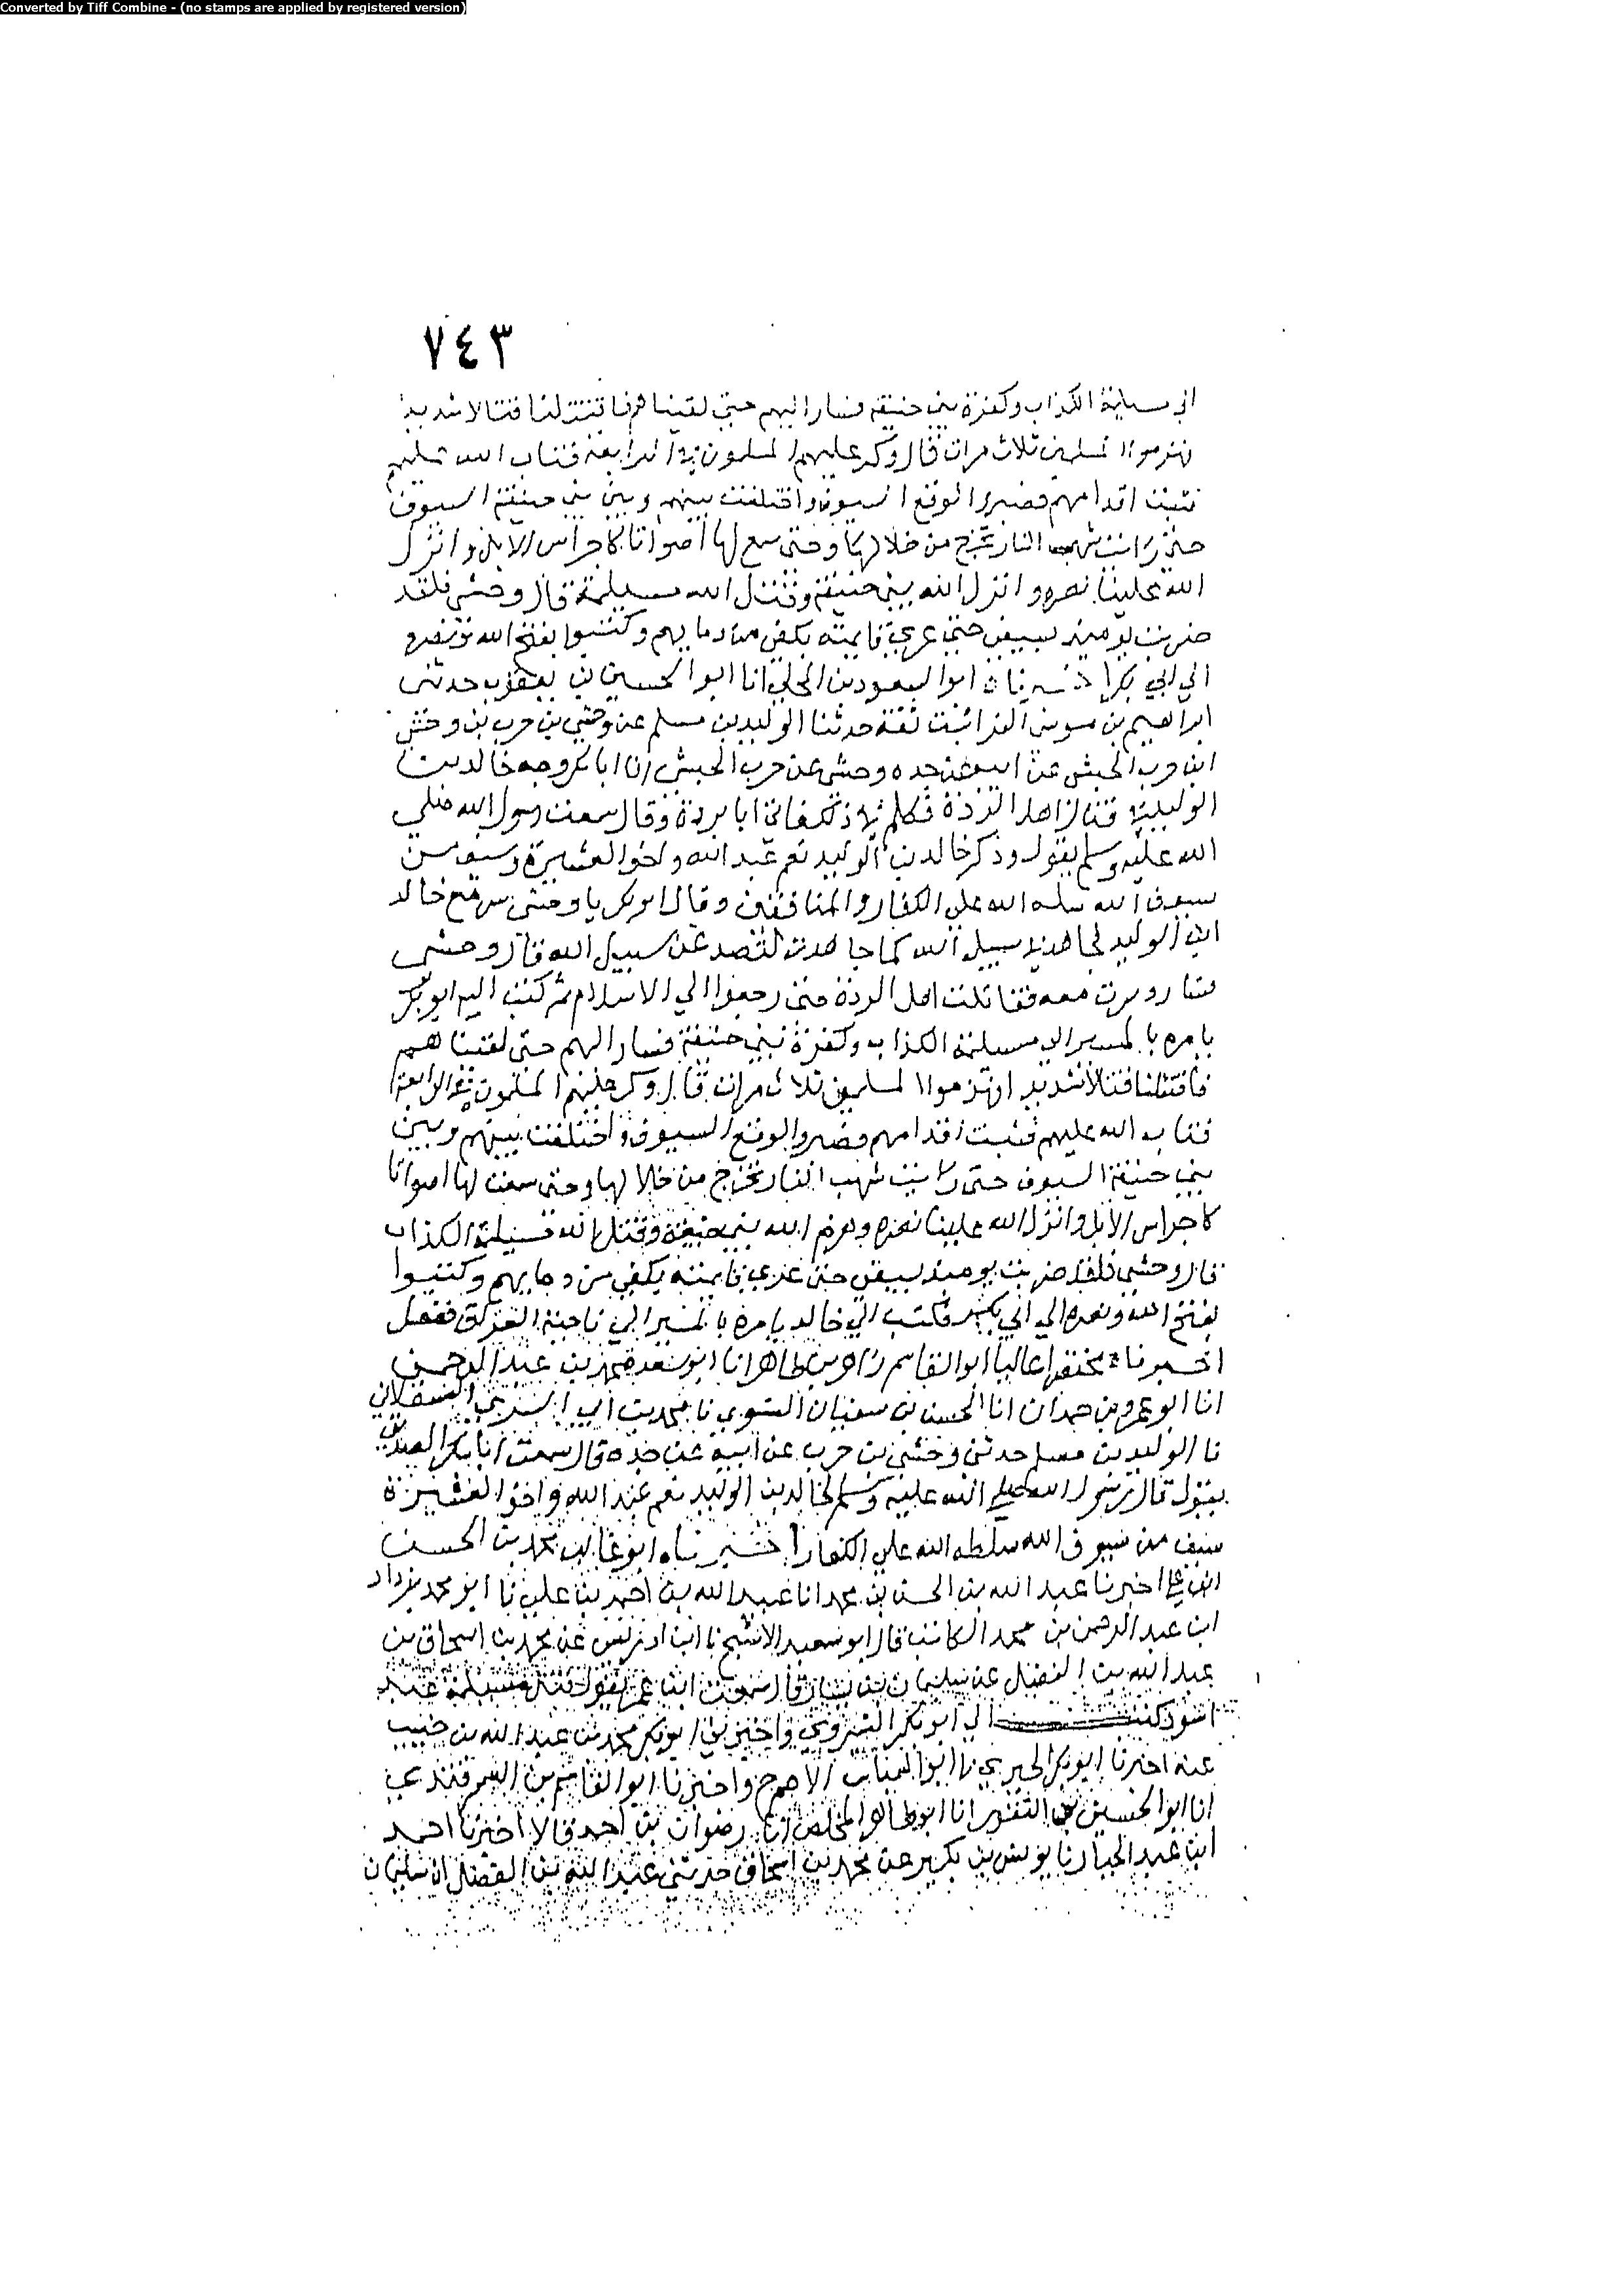 Converted by Tiff Combine - (no stamps are applied by registered version)
٧٤٣
الى مسيلمة الكذاب وكفرة بني حنيفة فسار اليهم حتى لقيناهم فاقتتلنا قتالا شديدا
فهزموا المسلمين ثلاث مرات قال وكر عليهم المسلمون في الرابعة فتاب الله عليهم
فثبت اقدامهم فصبروا لوقع السيوف واختلفت بينهم وبين بني حنيفة السيوف
حتى رايت شهب النار تخرج من خلالها وحتى سمع لها اصواتا كاجراس الابل وانزل
الله علينا نصره و انزل الله بني حنيفة وقتل الله مسيلمة قال وحشي فلقد
ضربت يومئذ بسيفي حتى غري قايمته بكفي من دمايهم وكتبوا بفتح الله ونصره
الى ابي بكر ابو السعود بن المجلي انا ابو الحسين بن حدثني
ابراهيم بن موسى الفرا ثقة حدثنا الوليد بن مسلم عن وحشي بن حرب بن وحشي
ابن حرب الحبشي عن ابيه عن جده وحشي عن حرب الحبشي ان ابا بكر وجه خالد بن
الوليد في قتال اهل الردة فكلم في ذلك فابى وقال سمعت رسول الله صلى
الله عليه وسلم يقول وذكر خالد بن الوليد نعم عبد الله واخو العشيرة وسيف من
سيوف الله سله الله على الكفار والمنافقين وقال ابو بكر يا وحشي سر مع خالد
ابن الوليد فجاهد في سبيل الله كما جاهدت لتصد عن سبيل الله قال وحشي
فسار وسرت معه فقاتلت اهل الردة حتى رجعوا الى الاسلام ثم كتب اليه ابو بكر
يامره بالمسير الى مسيلمة الكذاب وكفرة بني حنيفة فسار اليهم حتى لقيناهم
فاقتتلنا قتالا شديدا فهزموا المسلمين ثلاث مرات قال وكر عليهم المسلمون في الرابعة
فتاب الله عليهم فثبت اقدامهم وصبروا لوقع السيوف واختلفت بينهم وبين
بني حنيفة السيوف حتى رايت شهب النار تخرج من خلالها وحتى سمعت لها اصواتا
كاجراس الابل وانزل الله علينا نصره وهزم الله بني حنيفة وقتل الله مسيلمة الكذاب
قال وحشي فلقد ضربت يومئذ بسيفي حتى غري قايمته بكفي من دمايهم وكتبوا
بفتح الله ونصره الى ابي بكر فكتب الى خالد يامره بالمسير الى ناحية العراق ففعل
اخبرنا مختصرا عاليا ابو القاسم زاهر بن طاهر انا ابو سعد محمد بن عبد الرحمن
انا ابو عمرو بن حمدان انا الحسن بن سفيان النسوي نا محمد بن ابي السري العسقلاني
نا الوليد بن مسلم حدثني وحشي بن حرب عن ابيه عن جده قال سمعت ابا بكر الصديق
يقول قال رسول الله صلى الله عليه وسلم لخالد بن الوليد نعم عبد الله واخو العشيرة
سيف من سيوف الله سلطه الله على الكفار اخبرناه ابو غالب بن محمد بن الحسن
ابن علي اخبرنا عبد الله بن الحسن بن محمد انا عبيد الله بن احمد بن علي نا ابو محمد يزداد
ابن عبد الرحمن بن محمد الكاتب قال ابو سعيد الاشج نا ابن ادريس عن محمد بن اسحاق بن
عبد الله بن الفضل عن سليمان بن يسار قال سمعت ابن عمر يقول قتل مسيلمة عبد
اسود كتب الي ابو بكر الشيروي واخبرني ابو بكر محمد بن عبد الله بن حبيب
عنه اخبرنا ابو بكر الحيري نا ابو العباس الاصم ح واخبرنا ابو القاسم بن السمرقندي
انا ابو الحسين بن النقور انا ابو طاهر المخلص انا رضوان بن احمد قالا اخبرنا احمد
ابن عبد الجبار نا يونس بن بكير عن محمد بن اسحاق حدثني عبد الله بن الفضل ان سليمان